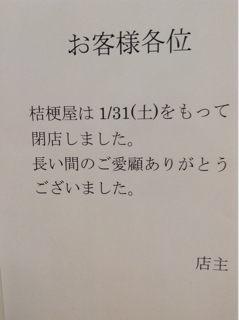 お客様各位
桔梗屋は 1/31(土)をもって
閉店しました。
長い間のご愛顧ありがとう
ございました。
店主